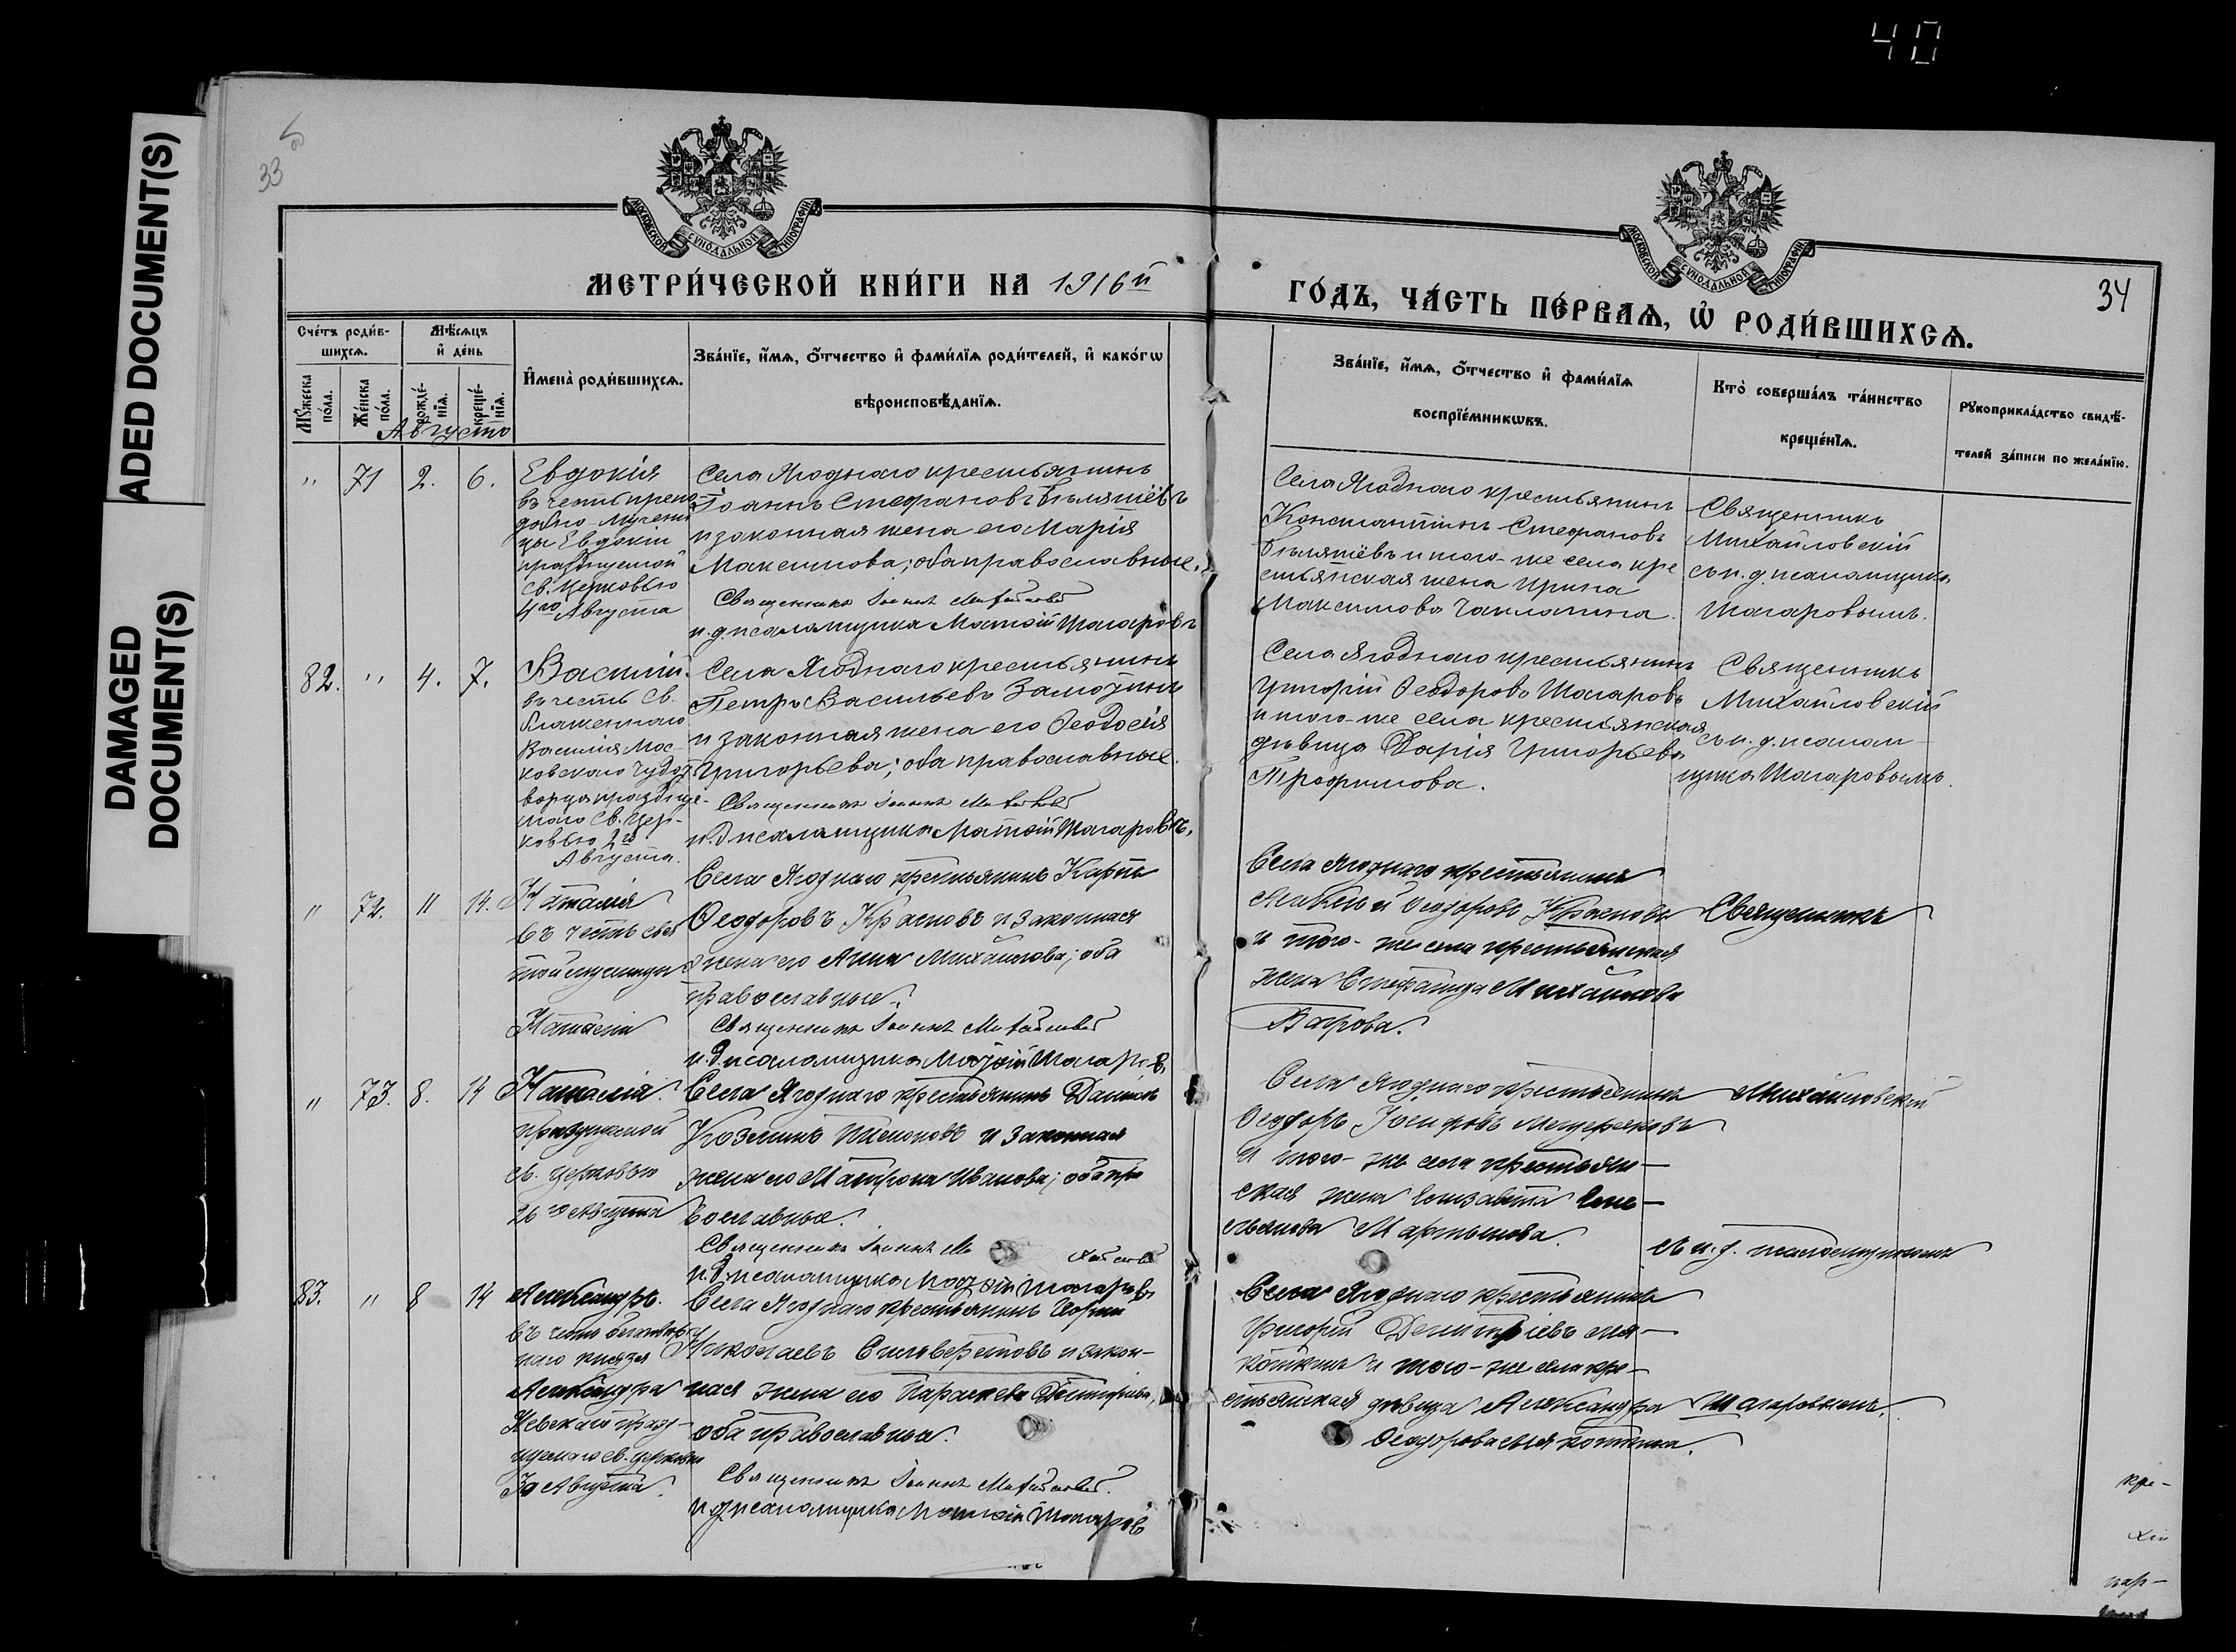 40
ADED DOCUMENT(S)
DAMAGED
DOCUMENT(S)
33
34
МОСКОВСКОЙ СѴНОДАЛЬНОЙ ТИПОГРАФІИ
МОСКОВСКОЙ СѴНОДАЛЬНОЙ ТИПОГРАФІИ
МЕТРИ́ЧЕСКОЙ КНИ́ГИ НА 1916й
ГО́ДЪ, ЧА́СТЬ ПЕ́РВАѦ, Ѡ҆ РОДИ́ВШИХСѦ.
Сче́тъ роди́в-
шихсѧ.
Мѣ́сѧцъ
и҆ де́нь
Мꙋ́жеска
по́ла.
Же́нска
по́ла.
рожде́-
нїѧ.
креще́-
нїѧ.
И҆мена̀ роди́вшихсѧ.
Зва́нїе, и҆́мѧ, ѻ҆́тчество и҆ фами́лїѧ роди́телей, и҆ како́гѡ
вѣроисповѣ́данїѧ.
Зва́нїе, и҆́мѧ, ѻ҆́тчество и҆ фами́лїѧ
воспрїе́мникѡвъ.
Кто̀ соверша́лъ та́инство
креще́нїѧ.
Рꙋкоприкла́дство свидѣ́-
телей за́писи по жела́нїю.
Августъ
" 71 2. 6.
Евдокія
въ честь препо
добно мучени
цы Евдокіи
празднуемой
св. Церковью
4го Августа
Села Ягоднаго крестьянинъ
Іоаннъ Стефановъ
и законная жена его Марія
Максимова; оба православные.
Священникъ Іоаннъ Михайловскій
и. д. псаломщика Матѳій Шагаровъ
Села Ягоднаго крестьянинъ
Константинъ Стефановъ
и того-же села кре
стьянская жена Ирина
Максимова
Священникъ
Михайловскій
съ и. д. псаломщика
Шагаровымъ.
82. " 4. 7.
Василій.
въ честь Св.
блаженнаго
Василія Мос-
ковскаго Чудот
ворца праздуе-
маго Св. Цер-
ковью 2го
Августа.
Села Ягоднаго крестьянинъ
Петръ Васильевъ
и законная жена его Ѳеодосія
Григорьева; оба православные.
Священникъ Іоаннъ Михайловскій
и. д. псаломщика Матѳій Шагаровъ.
Села Ягоднаго крестьянинъ
Григорій Ѳеодоровъ Шагаровъ
и того-же села крестьянская
дѣвица Дарія Григорьева
Трофимова.
Священникъ
Михайловскій
съ и. д. псалом
щика Шагаровымъ.
" 72. 11 14.
Наталія
въ честь свя
той мученицы
Наталіи
Села Ягоднаго крестьянинъ Карпъ
Ѳеодоровъ Красновъ и законная
жена его Анна Михайлова; оба
православные.
Священникъ Іоаннъ Михайловскій
и. д. псаломщика Матѳій Шагаровъ
Села Ягоднаго крестьянинъ
Алексѣй Ѳеодоровъ Красновъ
и того-же села крестьянская
жена Михайлова
Священникъ
" 73. 8. 14
Наталія.
празднуемой
св. церковью
26го Августа
Села Ягоднаго крестьянинъ Даніилъ
Козьминъ и законная
жена его Матрона Иванова; оба пра
вославные.
Священникъ Іоаннъ Михайловскій
и. д. псаломщика Матѳій Шагаровъ
Села Ягоднаго крестьянинъ
Ѳеодоръ Іосифовъ Мещеряковъ
и того-же села крестьян-
ская жена Елизавета Еме-
льянова Мартынова.
Михайловскій
съ и. д. псаломщикомъ
83. " 8 14
Александръ.
въ честь благовѣр
наго князя
Александра
Невскаго празд-
нуемаго св. церковью
30 Августа.
Села Ягоднаго крестьянинъ Георгій
Николаевъ Сильверстовъ и закон-
ная жена его Параскева Димитріева,
оба православные.
Священникъ Іоаннъ Михайловскій.
и. д. псаломщика Матѳій Шагаровъ
Села Ягоднаго крестьянинъ
Григорій Димитріевъ Мя-
котинъ и того-же села кре-
стьянская дѣвица Александра
Ѳеодорова Мякотина.
Шагаровымъ.
кре-